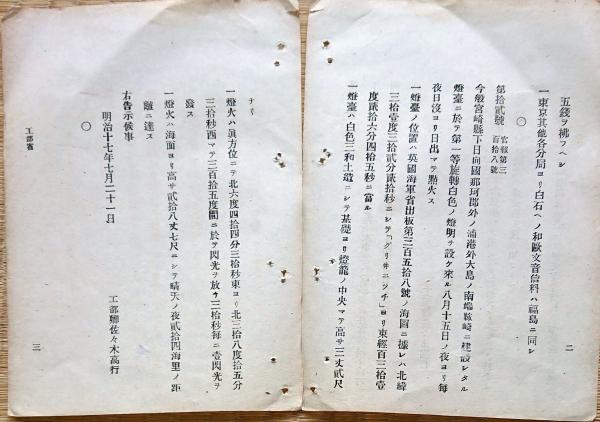 五錢ヲ拂フヘシ
○
一東京其他各分局ヨリ白石ヘノ和歐文音信料ハ福島ニ同シ
第拾貳號 官報第三百拾八號
今般宮崎縣下日向國那珂郡外ノ浦港外大島ノ南端鞍崎ニ建設シタル
燈臺ニ於テ第一等旋轉白色ノ燈明ヲ設ケ來ル八月十五日ノ夜ヨリ毎
夜日沒ヨリ日出マテ點火ス
一燈臺ノ位置ハ英國海軍省出板第三百五拾八號ノ海圖ニ據レハ北緯
三拾壹度三拾貳分貳拾秒ニシテ「グリ井ニッチ」ヨリ東經百三拾壹
度貳拾六分四拾五秒ニ當ル
一燈臺ハ白色三和土造ニシテ基礎ヨリ燈籠ノ中央マテ高サ三丈貳尺
二
ナリ
一燈火ハ眞方位ニテ北六度四拾四分三拾秒東ヨリ北三拾八度拾五分
三拾秒西マテ三百拾五度間ニ於テ閃光ヲ放ツ三拾秒毎ニ壹閃光ヲ
發ス
一燈火ハ海面ヨリ高サ貳拾八丈七尺ニシテ晴天ノ夜貳拾四海里ノ距
離ニ達ス
右告示候事
明治十七年七月二十一日
工部卿佐々木高行
○
工部省
三